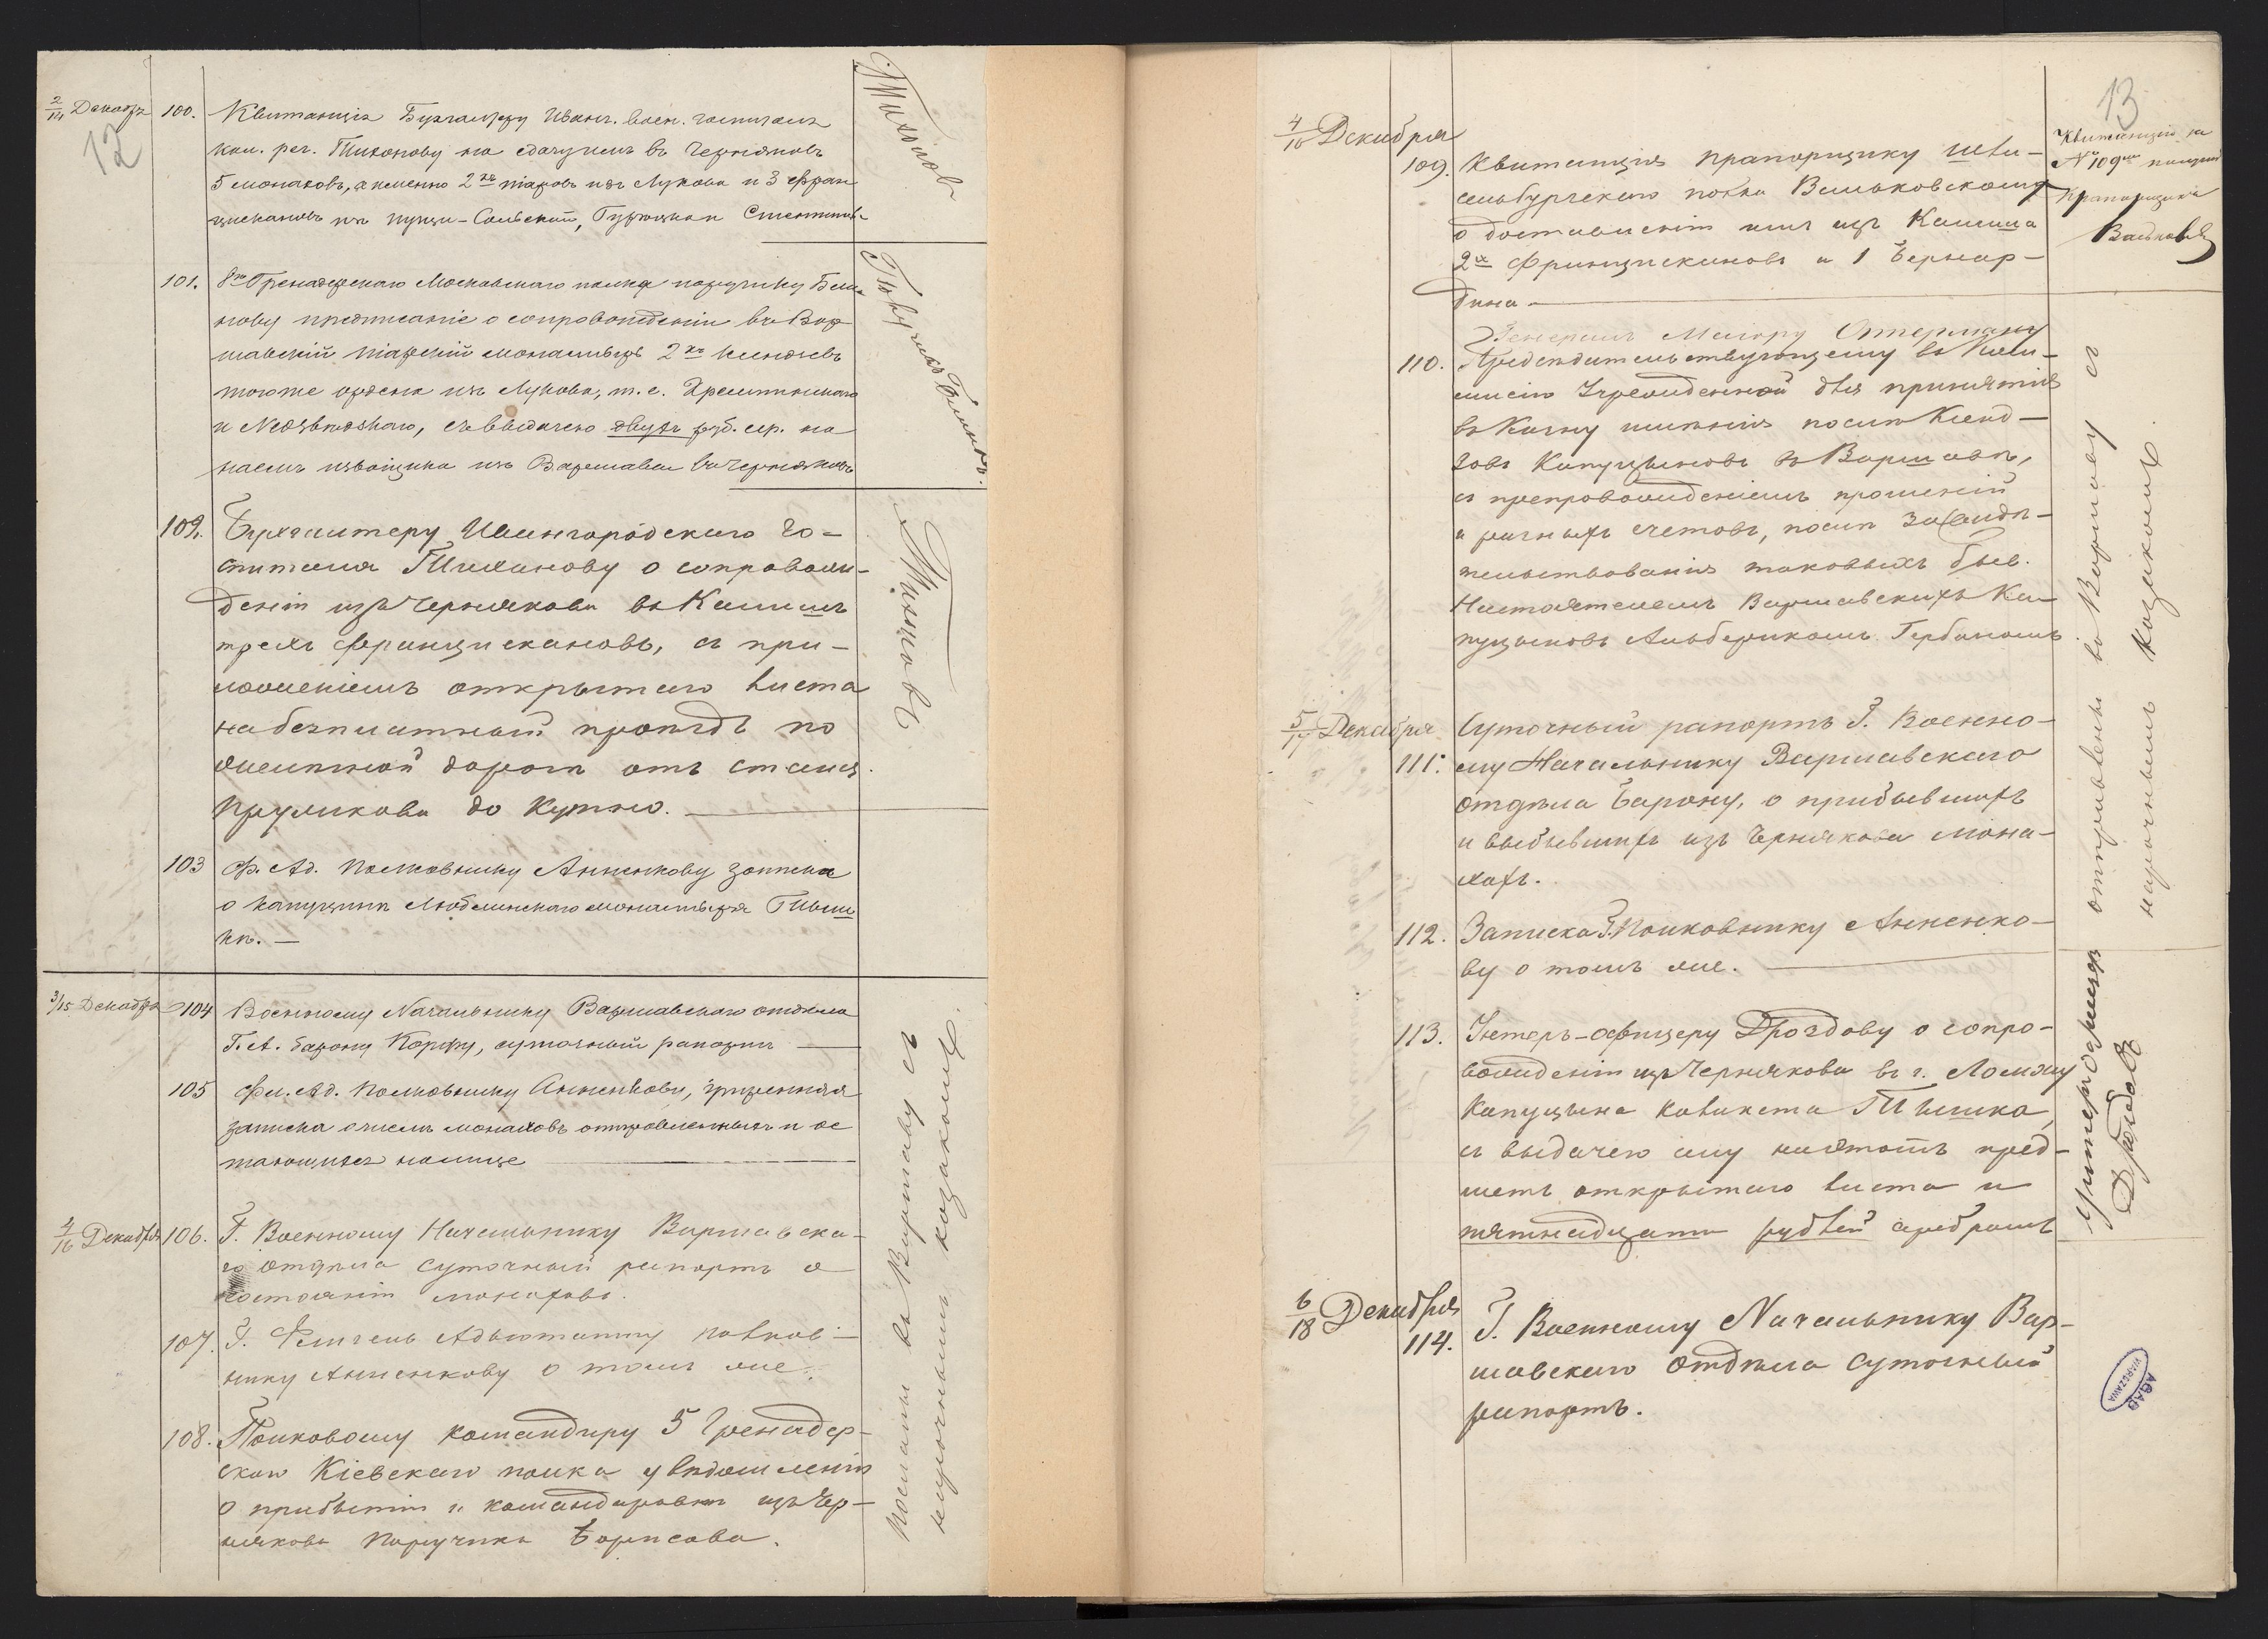 2/14 Декабря
12
100. Квитанція Бухгалтеру Иванг. воен. госпиталя
кол. рег. Тихонову на сдачу имъ въ Черняковъ
5 монаховъ, а именно 2хъ піаровъ изъ Лукова и 3 фран
цискановъ изъ
Тихоновъ
101. Гренадерскаго Московскаго полка поручику
предписаніе о сопровожденіи въ Вар
шавскій піарскій монастырь 2хъ ксендзовъ
тогоже ордена изъ Лукова, т. е.
и съ выдачею двухъ руб. сер. на
наемъ извощика изъ Варшавы въ Черняковъ
Поручикъ
102. Бухгалтеру Ивангородскаго Го-
спиталя Тихонову о сопровож-
деніи изъ Чернякова въ Калишъ
трехъ францискановъ, съ при-
ложеніемъ открытаго листа
на безплатный проѣздъ по
желѣзной дорогѣ отъ станц.
Прушкова до Кутно.
Тихоновъ
103 Ф. Ад. Полковнику Анненкову записка
о капуцинѣ Люблинскаго монастыря Тыш
кѣ.
3/15 Декабря 104 Военному Начальнику Варшавскаго отдѣла
Г. А. барону Корфу, суточный рапортъ
105 Фл. Ад. Полковнику Анненкову,
записка о числѣ монаховъ отправленныхъ и ос
тающихся налицо
4/16 Декабря 106. Г. Военному Начальнику Варшавска-
го отдѣла суточный рапортъ о
состояніи монаховъ.
107. Г. Флигель Адъютанту Полков-
нику Анненкову о томъ же.
108. Полковому командиру 5 Гренадер-
скаго Кіевскаго полка увѣдомленіе
о прибытіи и командировкѣ изъ Чер-
някова Поручика Борисова.
Посланы въ Варшаву съ
нарочнымъ козакомъ.
13
4/16 Декабря
109. Квитанція прапорщику Шли-
сельбургскаго полка Вальковскому
о доставленіи имъ изъ Калиша
2хъ Францискановъ и 1 Бернар-
дина
Квитанцію за
№ 109мъ получилъ
Прапорщикъ
110. Генералъ Маіору Оттерману
Предсѣдательствующему въ Коми-
мисію Учрежденной для принятія
въ Казну имѣнія послѣ Ксенд-
зовъ Капуциновъ въ Варшавѣ,
съ препровожденіемъ прошеній
и разныхъ счетовъ, послѣ засвидѣ-
тельствованія таковыхъ быв.
Настоятелемъ Варшавскихъ Ка-
пуциновъ Альберикомъ Гербаномъ
5/17 Декабря
111. Суточный рапортъ Г. Военно-
му Начальнику Варшавскаго
отдѣла Барону, о прибывшихъ
и выбывшихъ изъ Чернякова мона-
хахъ.
112. Записка Г. Полковнику Анненко-
ву о томъ же.
отправлены въ Варшаву съ
нарочнымъ козакомъ.
113. Унтеръ-офицеру Дроздову о сопро-
вожденіи изъ Чернякова въ г. Ломжу
Капуцына Каликста Тышка,
съ выдачею ему на этотъ пред-
метъ открытаго листа и
пятнадцати рублей серебромъ
Унтерофицеръ
Дроздовъ
6/18 Декабря
114. Г. Военному Начальнику Вар-
шавскаго Отдѣла суточный
рапортъ.
AGAD
WARSZAWA